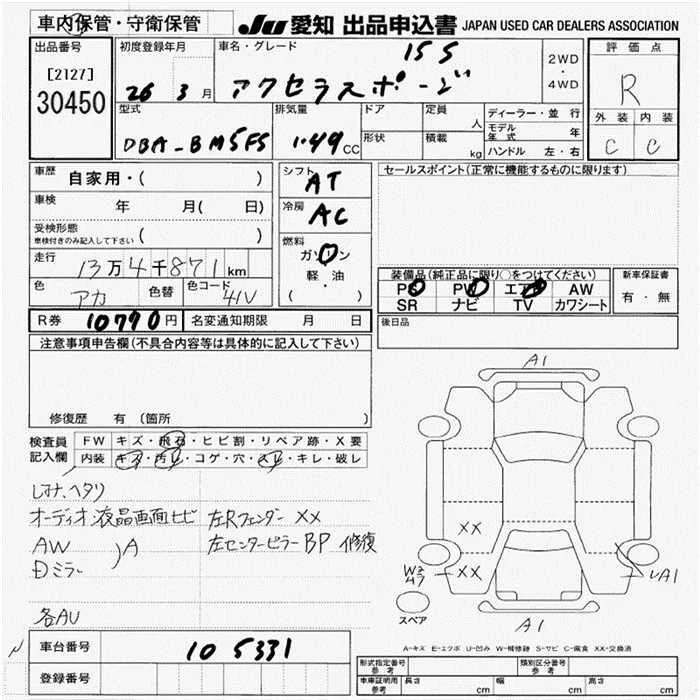 車内保管・守衛保管
JU 愛知 出品申込書 JAPAN USED CAR DEALERS ASSOCIATION
出品番号
[2127]
30450
初度登録年月
26 3月
車名・グレード
15S
アクセラスポーツ
2WD
・
4WD
評価点
R
外装 内装
C C
型式
DBA-BM5FS
排気量
1.49cc
ドア
形状
定員
人
積載
kg
ディーラー・並行
モデル年式 年
ハンドル 左・右
車歴
自家用・( )
車検
年 月( 日)
受検形態
車検付きのみ記入して下さい ( )
走行
13万4千871km
色
アカ
色替
色コード
41V
シフト
AT
冷房
AC
燃料
ガソリン
・
軽油
( )
セールスポイント(正常に機能するものに限ります)
装備品(純正品に限り○をつけてください)
PS PW エアB AW
SR ナビ TV カワシート
新車保証書
有・無
R券 10790円
名変通知期限 月 日
後日品
注意事項申告欄(不具合内容等は具体的に記入して下さい)
修復歴 有(箇所 )
検査員記入欄
FW キズ・飛石・ヒビ割・リペア跡・X要
内装 キズ・汚レ・コゲ・穴・スレ・キレ・破レ
ヘタリ
オーディオ液晶画面ヒビ 左Rフェンダー XX
AW
A
左センターピラーBP 修復
ミラー
各AU
A1
XX
XX
A1
A1
スペア
A-キズ E-エクボ U-凹み W-補修跡 S-サビ C-腐食 XX-交換済
車台番号 105331
登録番号
形式指定番号
参考
類別区分番号
参考
車庫証明用
参考
長さ cm 幅 cm 高さ cm